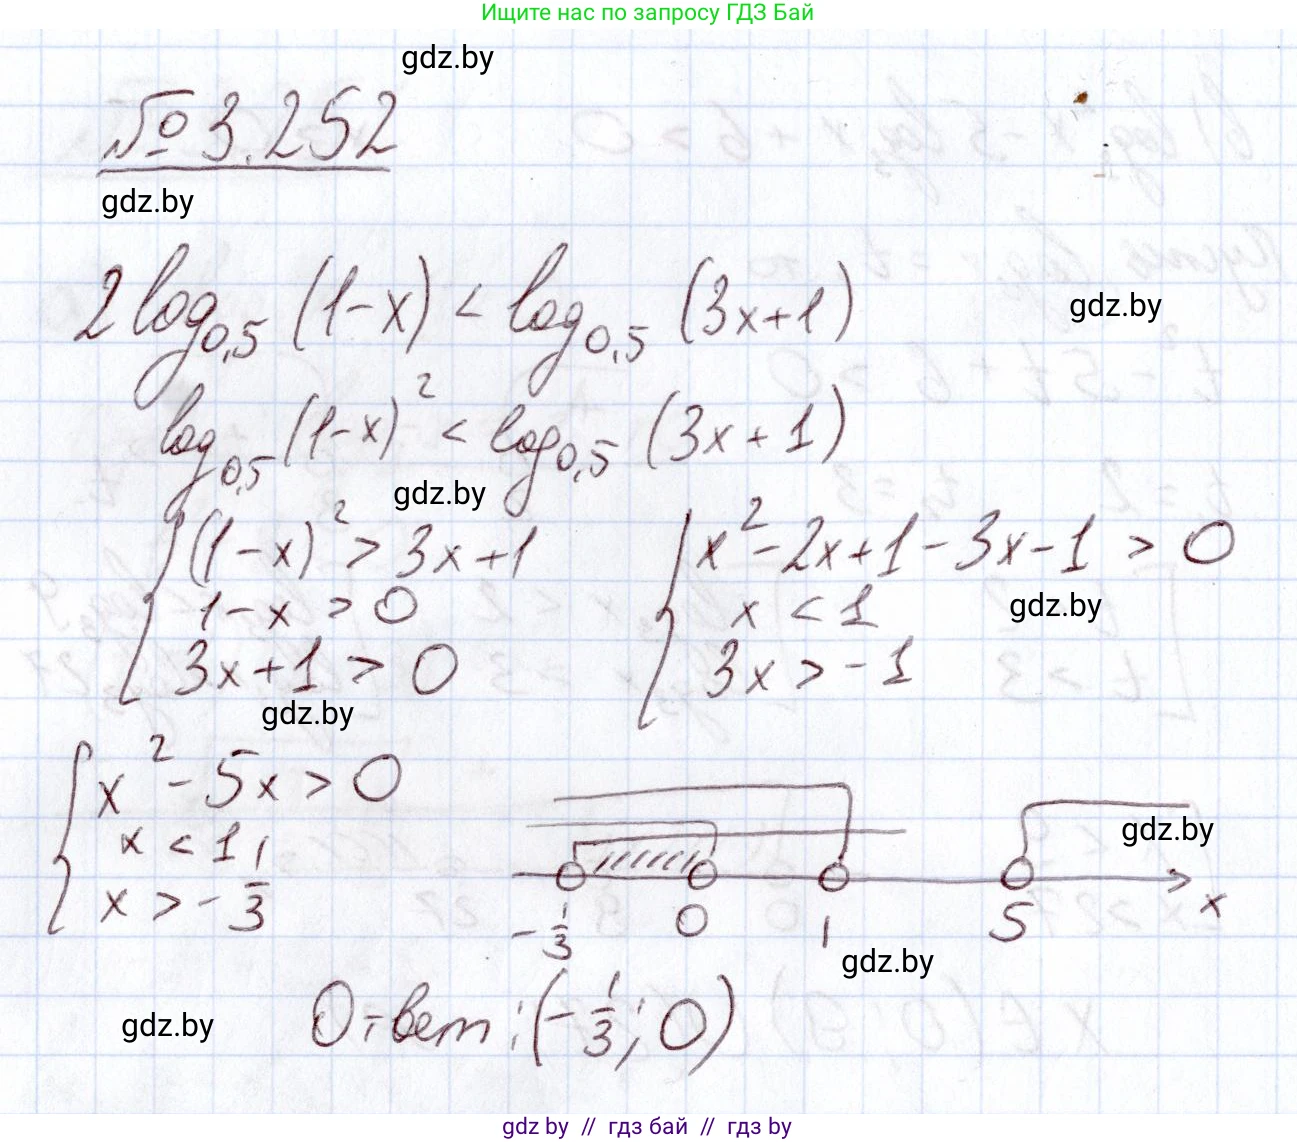 Ищите нас по запросу ГДЗ Бай
gdz.by
№ 3.252
gdz.by
2 log₀,₅ (1-x) < log₀,₅ (3x+1)
gdz.by
log₀,₅ (1-x)² < log₀,₅ (3x+1)
gdz.by
{ (1-x)² > 3x+1
1-x > 0
3x+1 > 0
{ x²-2x+1-3x-1 > 0
x < 1
3x > -1
gdz.by
gdz.by
{ x² - 5x > 0
x < 1
x > -1/3
gdz.by
-1/3 0 1 5 x
gdz.by
gdz.by
Ответ: (-1/3; 0)
gdz.by // гдз бай // гдз by